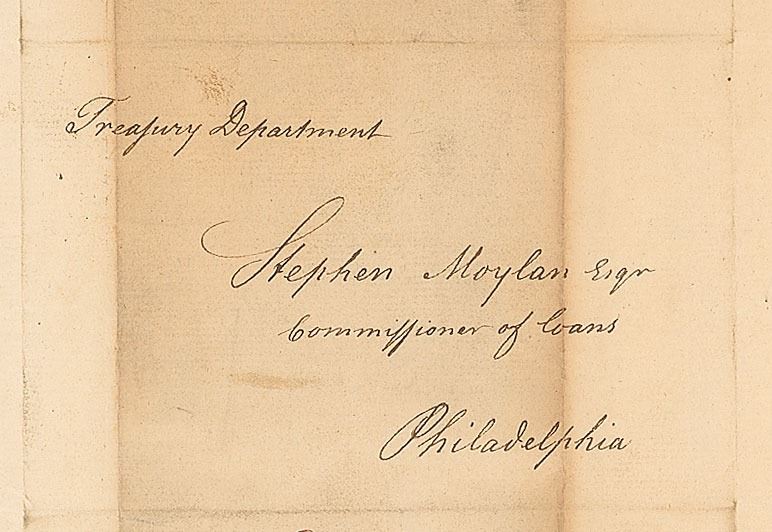 Treaſury Department
Stephen Moylan Esqr
Commiſsioner of Loans
Philadelphia